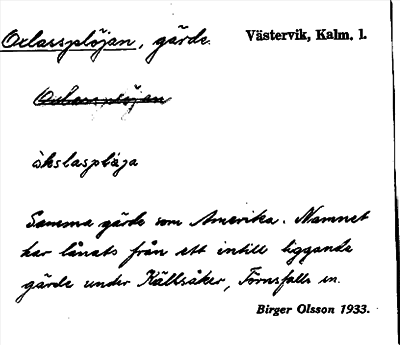 Oxlassplöjan, gärde. Västervik, Kalm. l.
Oxlassplöjan
ökslasplöja
Samma gärde som Amerika. Namnet
har lånats från ett intill liggande
gärde under Källsåker, Törnsfalls sn.
Birger Olsson 1933.